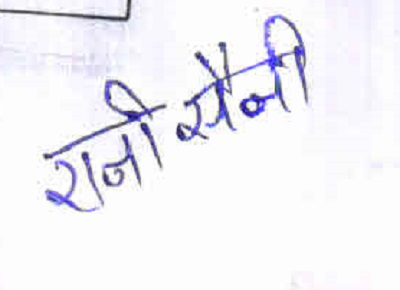 रानी सैनी